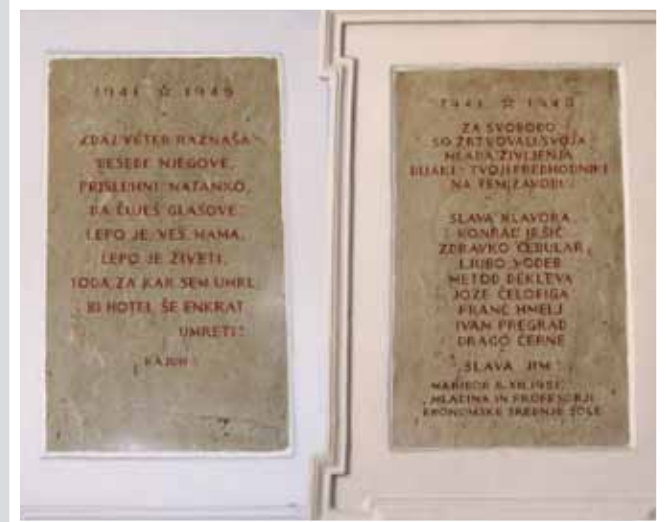 1941 ☆ 1945
ZDAJ VETER RAZNAŠA
BESEDE NJEGOVE,
PRISLUHNI NATANKO,
DA ČUJEŠ GLASOVE:
LEPO JE, VEŠ, MAMA,
LEPO JE ŽIVETI,
TODA, ZA KAR SEM UMRL,
BI HOTEL ŠE ENKRAT
UMRETI!
KAJUH
1941 ☆ 1945
ZA SVOBODO
SO ŽRTVOVALI SVOJA
MLADA ŽIVLJENJA
DIJAKI - TVOJI PREDHODNIKI
NA TEM ZAVODU:
SLAVA KLAVORA
KONRAD
ZDRAVKO ČEBULAR
LJUBO VODEB
METOD DEKLEVA
JOŽE ČELOFIGA
FRANC HMELJ
IVAN PREGRAD
DRAGO ČERNE
SLAVA JIM!
MARIBOR
MLADINA IN PROFESORJI
EKONOMSKE SREDNJE ŠOLE